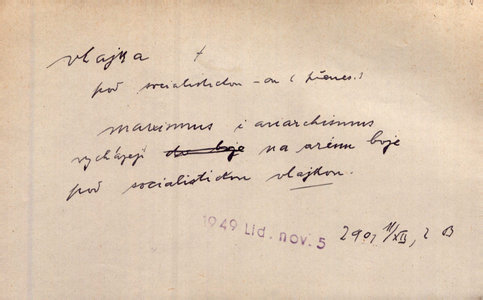 vlajka +
pod socialistickou -ou (přenes.)
marxismus i anarchismus
vycházejí na arénu boje
pod socialistickou vlajkou.
1949 Lid. nov. 5 290, 11/XII, 2 B